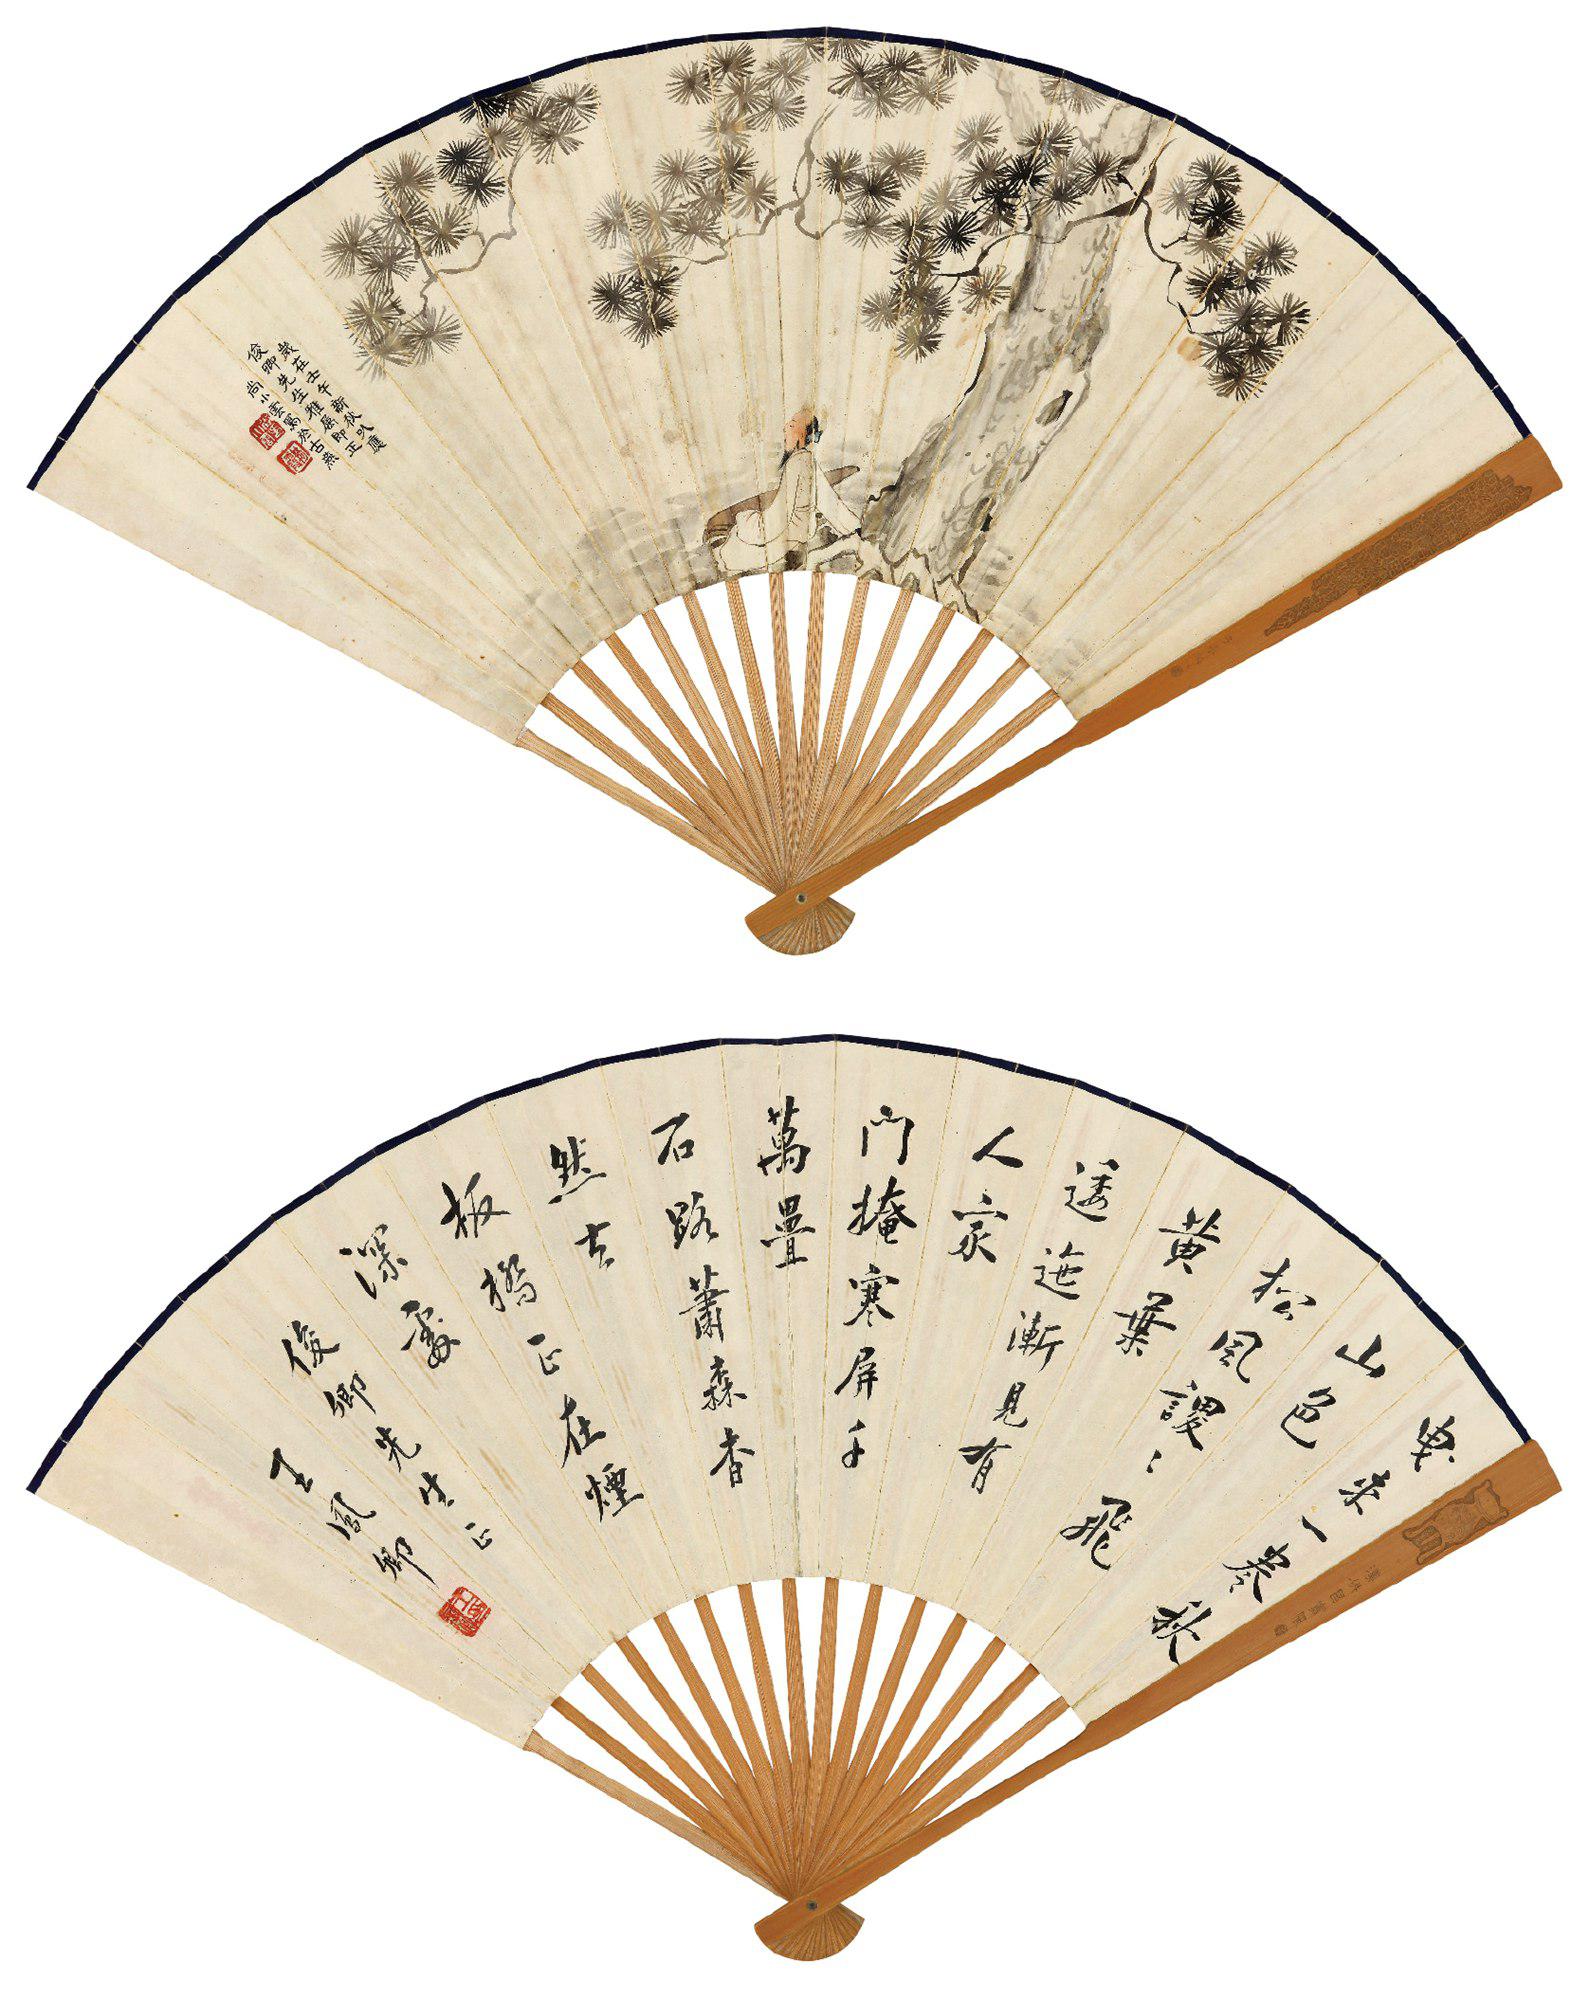 歲在壬午新秋以應
俊卿先生雅屬即正
尚小雲寫於古燕
來一秋
山色
松風謖〻飛
黃葉
逶迤漸見有
人家
門掩寒屏千
萬疊
石路蕭森杳
然去
板橋正在煙
深處
俊卿先生正
王鳳卿